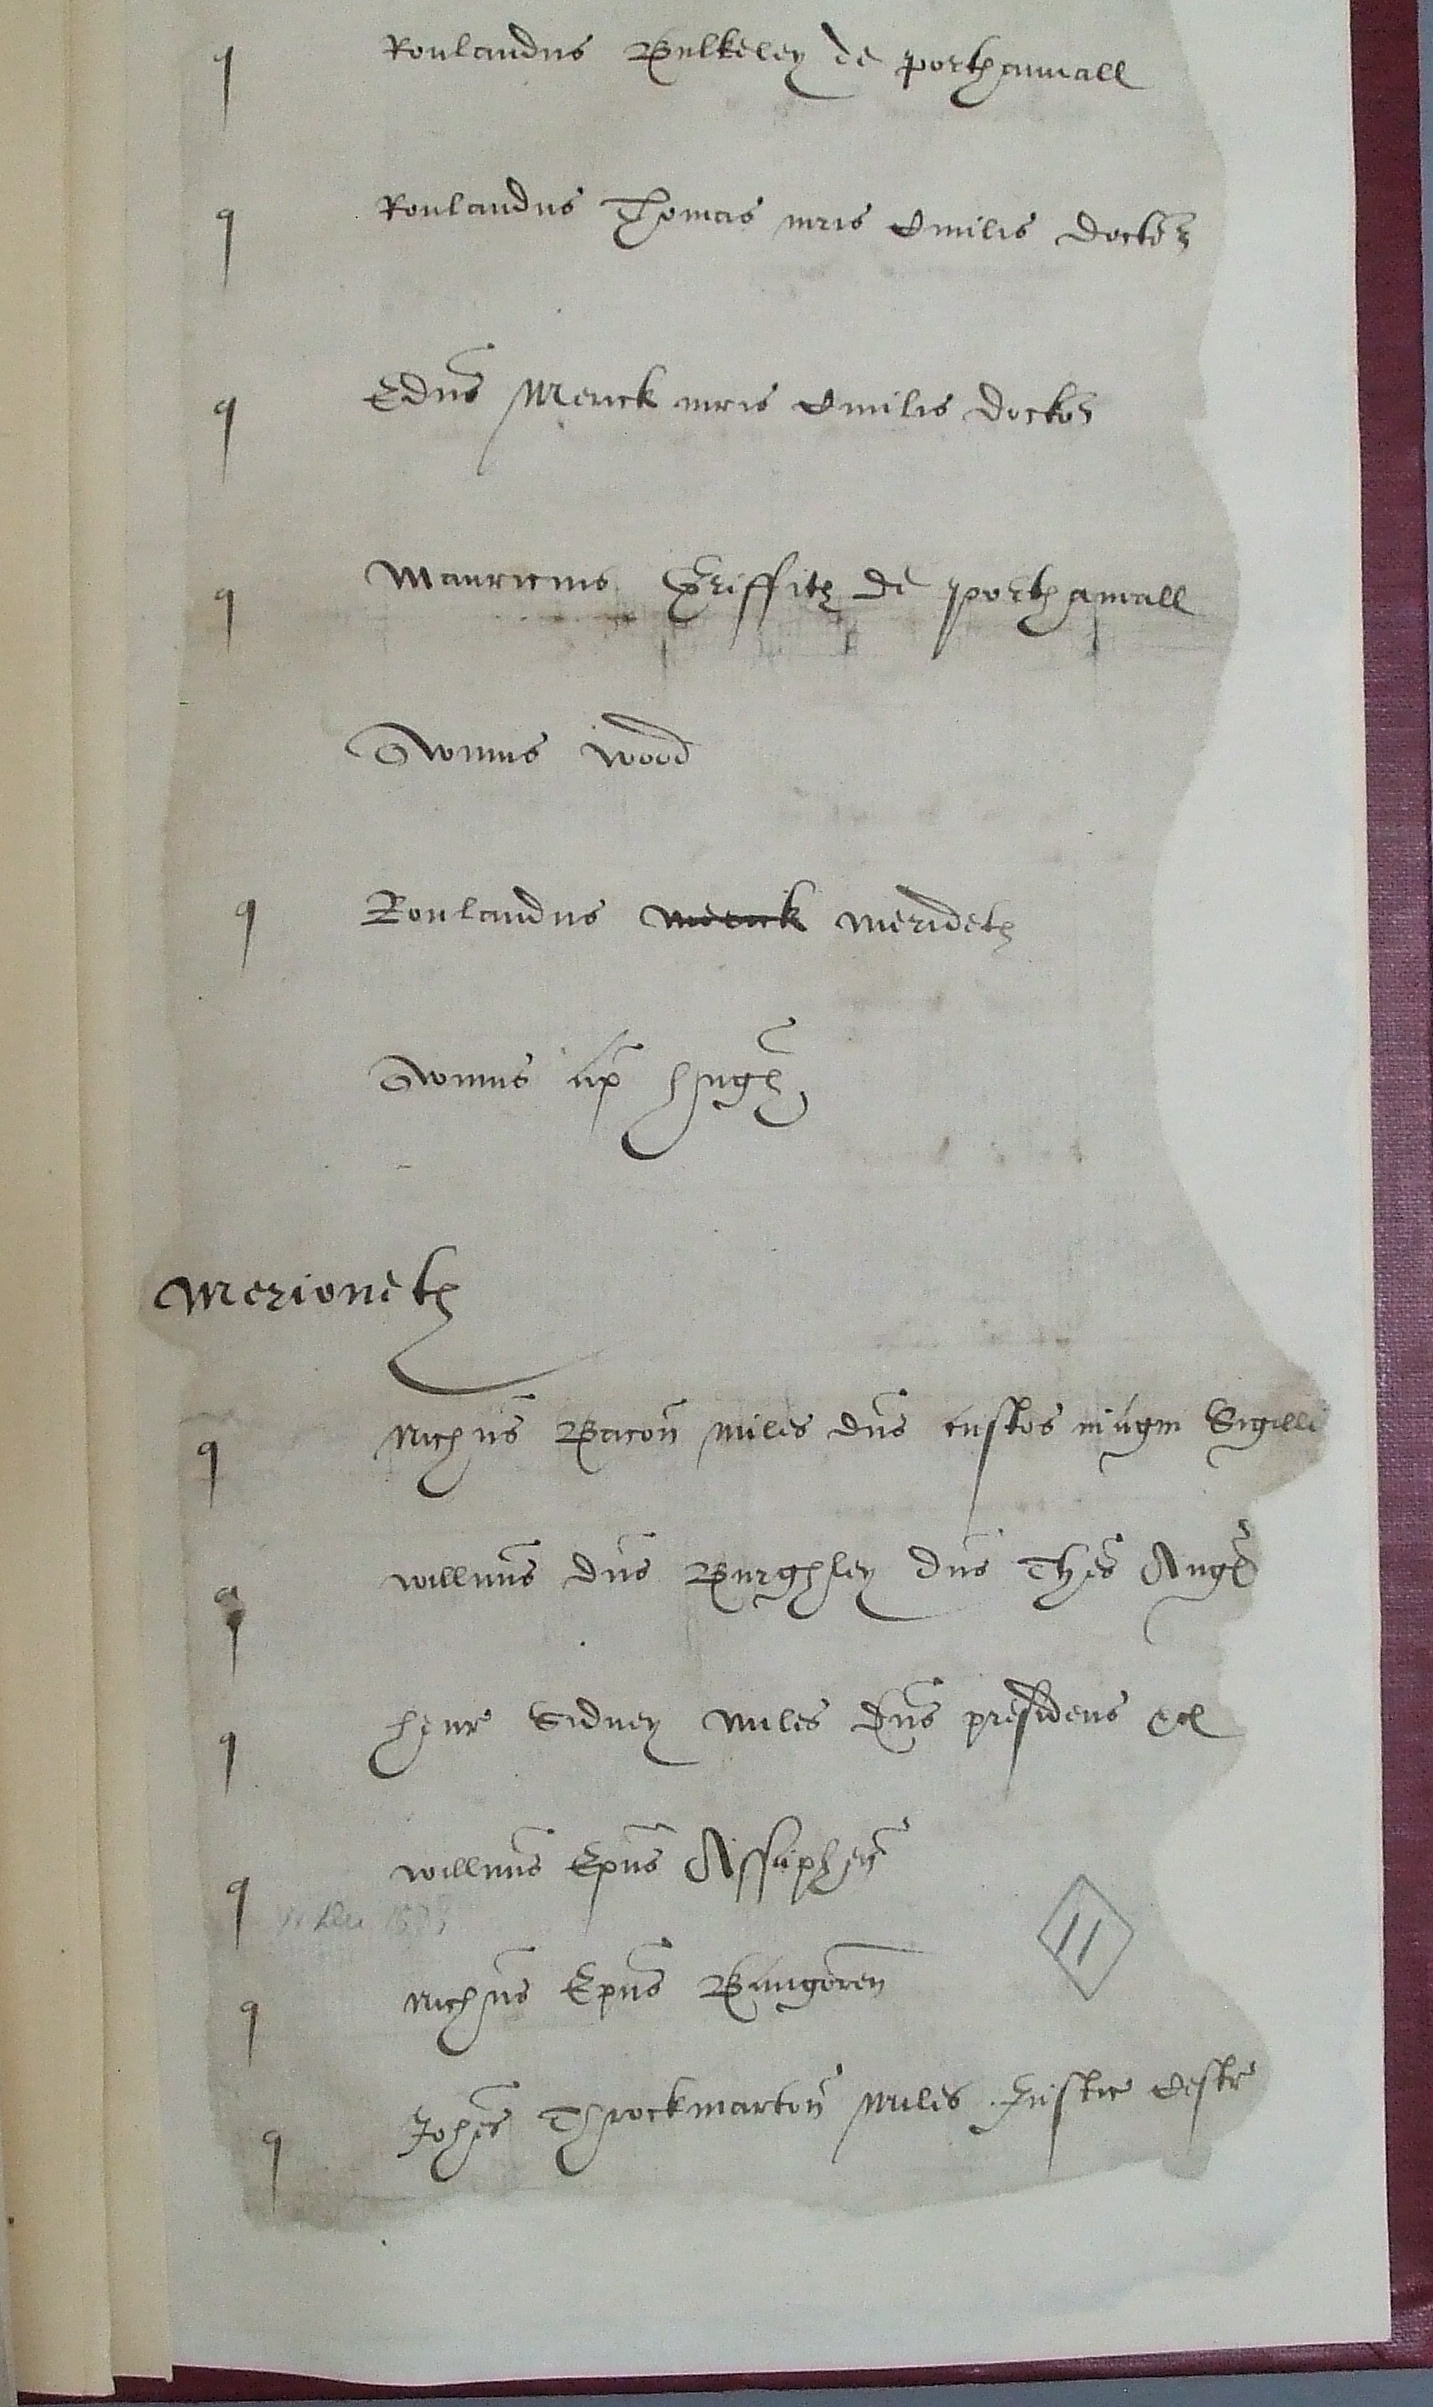 q Roulandus Bulkeley de porthamall
q Roulandus Thomas iuris Civilis doctor
q Edus Merick iuris Civilis doctor
q Mauricius Griffith de porthamall
Owinus Wood
q Roulandus Merick Merideth
Owinus ap Hugh
Merioneth
q Nichus Bacon miles dns custos magni Sigilli
q Willmus dns Burghley dns Thes Angl
q Henr Sidney miles dns presidens &c
q Willmus Epus Assaphen
q Nichus Epus Bangoren
11
q Johes Throckmarton Miles Justic Cestr